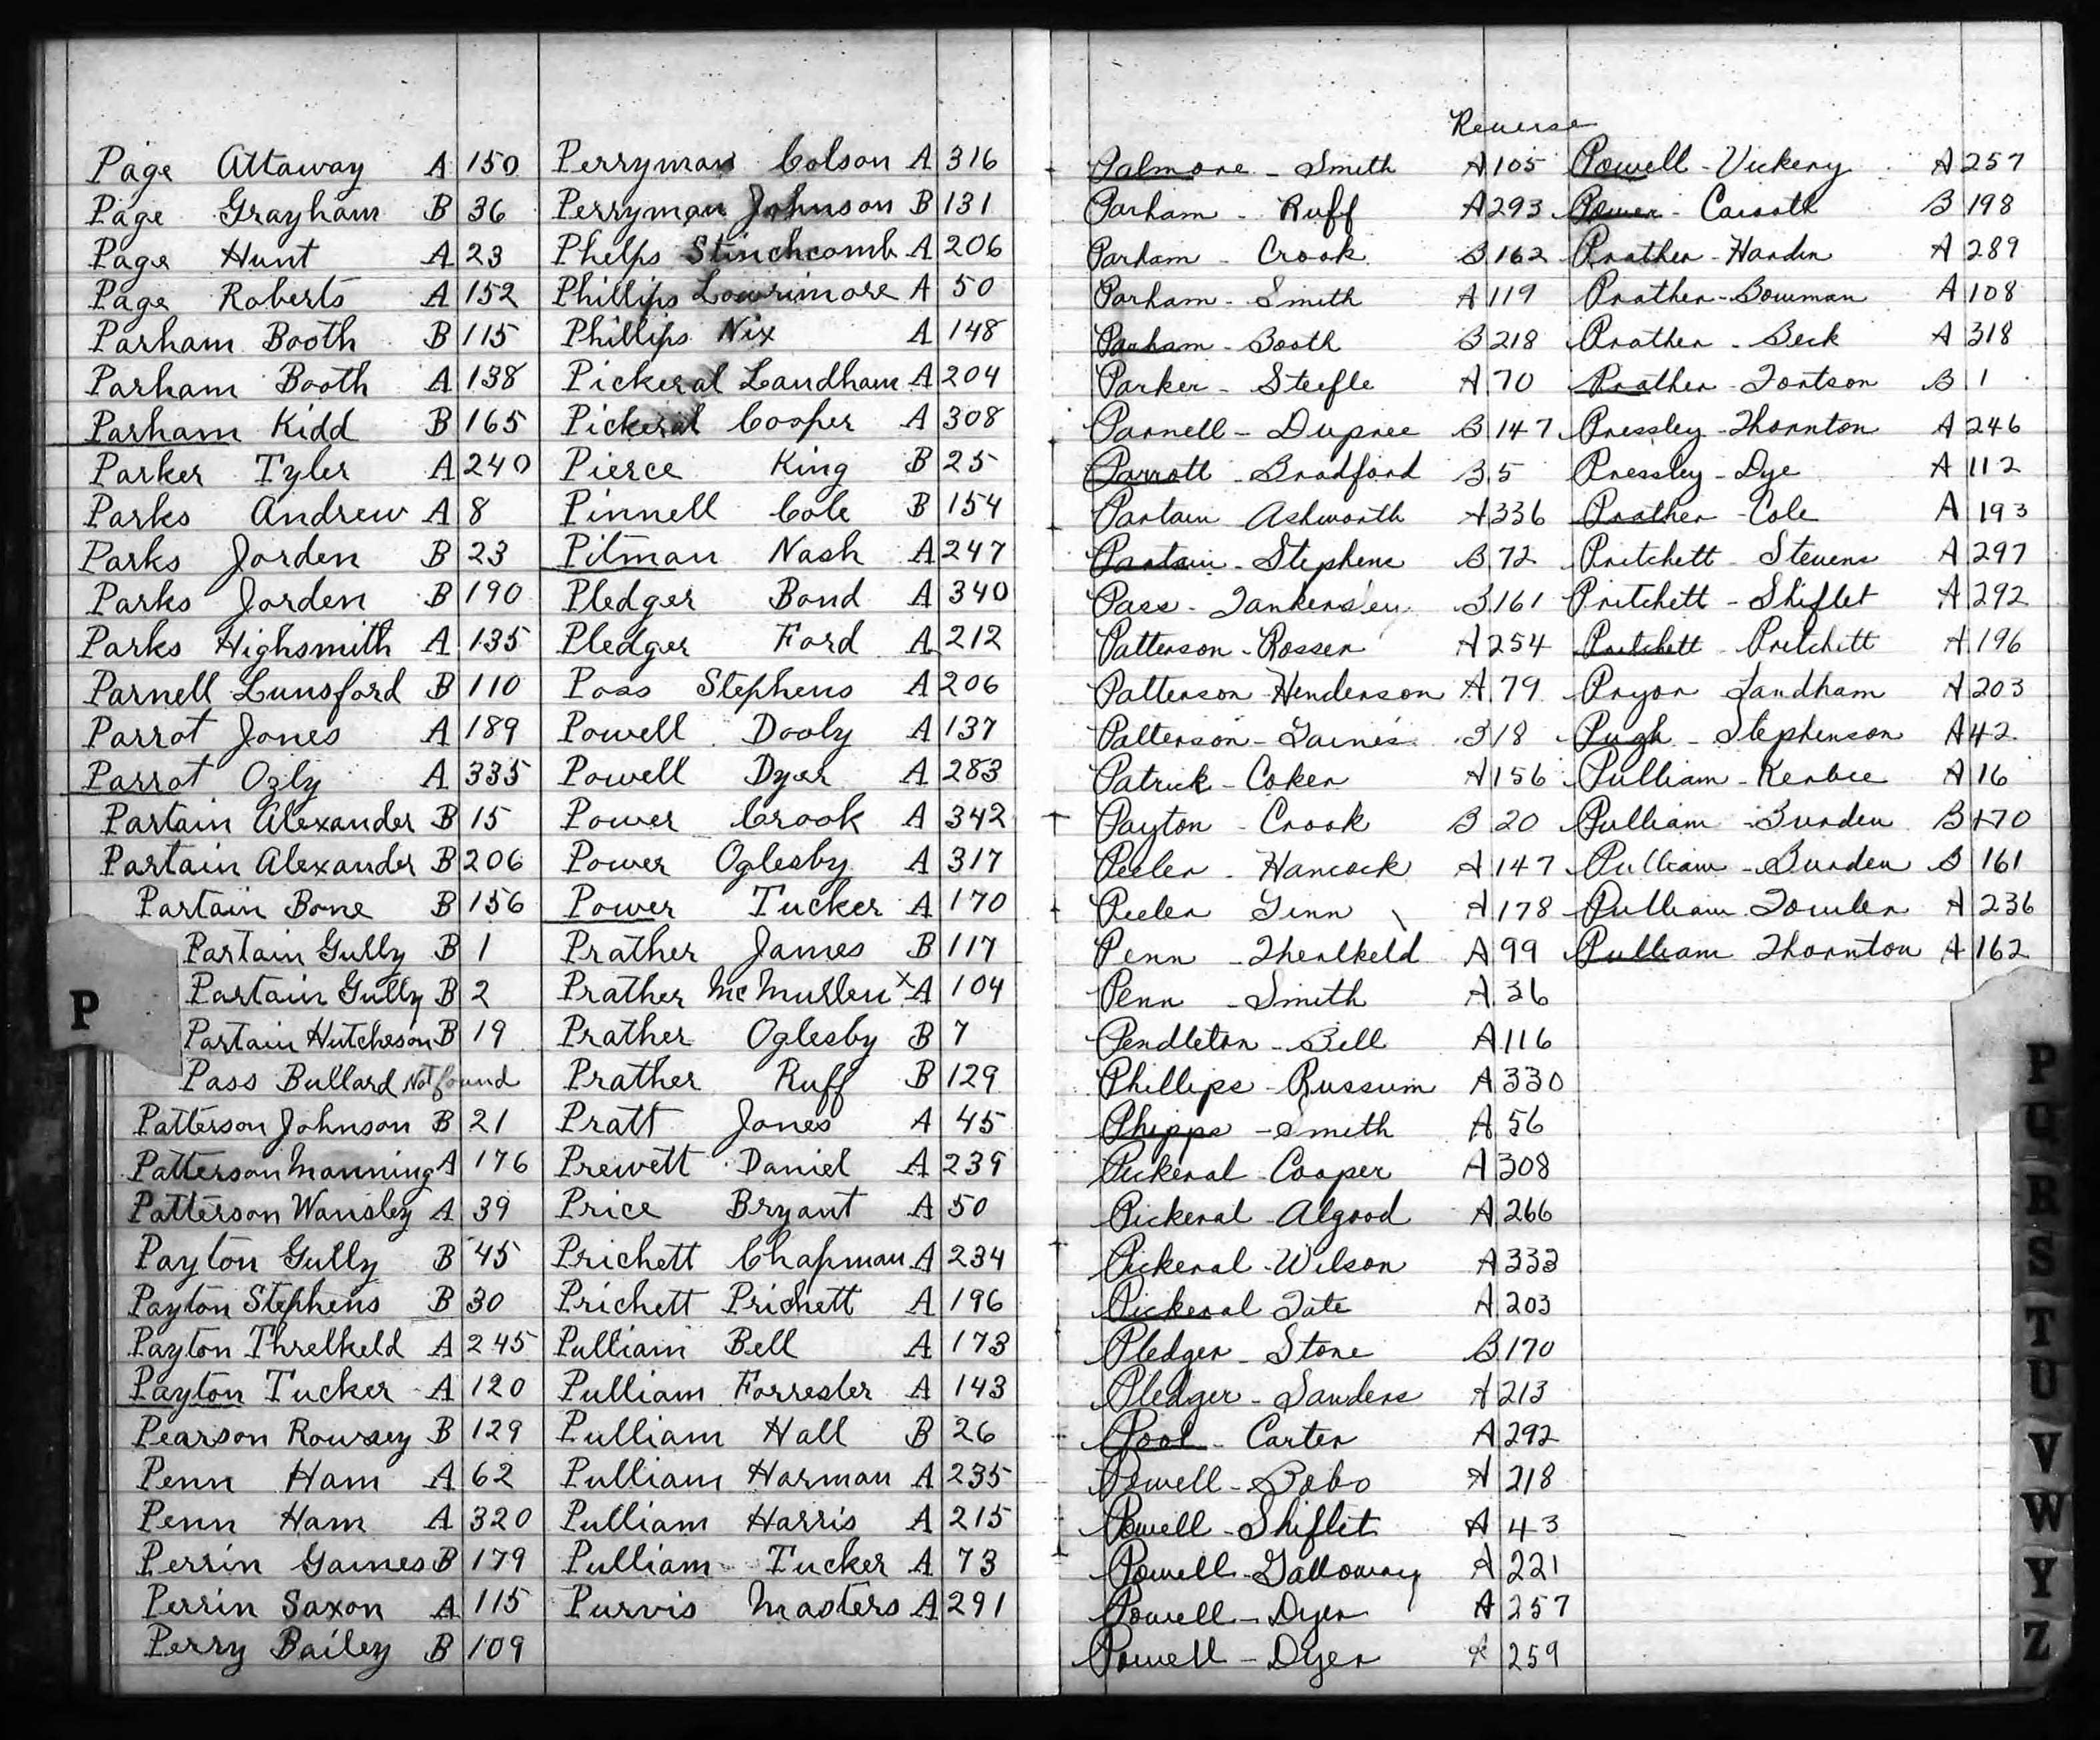 Page Attaway A 150
Page Grayham B 36
Page Hunt A 23
Page Roberts A 152
Parham Booth B 115
Parham Booth A 138
Parham Kidd B 165
Parker Tyler A 240
Parks Andrew A 8
Parks Jorden B 23
Parks Jorden B 190
Parks Highsmith A 135
Parnell Lunsford B 110
Parrot Jones A 189
Parrot Ozly A 335
Partain Alexander B 15
Partain Alexander B 206
Partain Bone B 156
Partain Gully B 1
Partain Gully B 2
Partain Hutcheson B 19
Pass Bullard Not found
Patterson Johnson B 21
Patterson Manning A 176
Patterson Wansley A 39
Payton Gully B 45
Payton Stephens B 30
Payton Threlkeld A 245
Payton Tucker A 120
Pearson Roursey B 129
Penn Ham A 62
Penn Ham A 320
Perrin Gaines B 179
Perrin Saxon A 115
Perry Bailey B 109
P
Perryman Colson A 316
Perryman Johnson B 131
Phelps Stinchcomb A 206
Phillips Lowrimore A 50
Phillips Nix A 148
Pickeral Landham A 204
Pickeral Cooper A 308
Pierce King B 25
Pinnell Cole B 154
Pitman Nash A 247
Pledger Bond A 340
Pledger Ford A 212
Poss Stephens A 206
Powell Dooly A 137
Powell Dyer A 283
Power Crook A 342
Power Oglesby A 317
Power Tucker A 170
Prather James B 117
Prather McMullen x A 104
Prather Oglesby B 7
Prather Ruff B 129
Pratt Jones A 45
Prewett Daniel A 239
Price Bryant A 50
Prichett Chapman A 234
Prichett Prichett A 196
Pulliam Bell A 173
Pulliam Forrester A 143
Pulliam Hall B 26
Pulliam Harman A 235
Pulliam Harris A 215
Pulliam Tucker A 73
Purvis Masters A 291
Reverse
Palmore - Smith A 105
Parham - Ruff A 293
Parham - Crook B 162
Parham - Smith A 119
Parham - Booth B 218
Parker - Steefle A 70
Parnell - Dupree B 147
Parrott - Bradford B 5
Partain Ashworth A 336
Partain - Stephens B 72
Pass - Tankersley B 161
Patterson - Rosser A 254
Patterson - Henderson A 79
Patterson - Gaines B 18
Patrick - Coker A 156
Payton - Crook B 20
Peeler - Hancock A 147
Peeler Ginn A 178
Penn - Therlkeld A 99
Penn - Smith A 36
Pendleton - Bell A 116
Phillips - Russum A 330
Phipps - Smith A 56
Pickeral - Cooper A 308
Pickeral - Algood A 266
Pickeral - Wilson A 333
Pickeral Tate A 203
Pledger - Stone B 170
Pledger - Sanders A 213
Pool - Carter A 292
Powell - Bobo A 218
Powell - Shiflet A 43
Powell - Galloway A 221
Powell - Dyer A 257
Powell - Dyer A 259
Powell - Vickery A 257
Power - B 198
Prather - Hardin A 289
Prather - Bowman A 108
Prather - Beck A 318
Prather - Tortson B 1
Pressley - Thornton A 246
Pressley - Dye A 112
Prather - Cole A 193
Pritchett - Stevens A 297
Pritchett - Shiflet A 292
Pritchett - Pritchett A 196
Pryor Landham A 203
Pugh - Stephenson A 42
Pulliam - Kerbie A 16
Pulliam - Burden B 170
Pulliam - Burden B 161
Pulliam Towler A 236
Pulliam Thornton A 162
P
Q
R
S
T
U
V
W
Y
Z